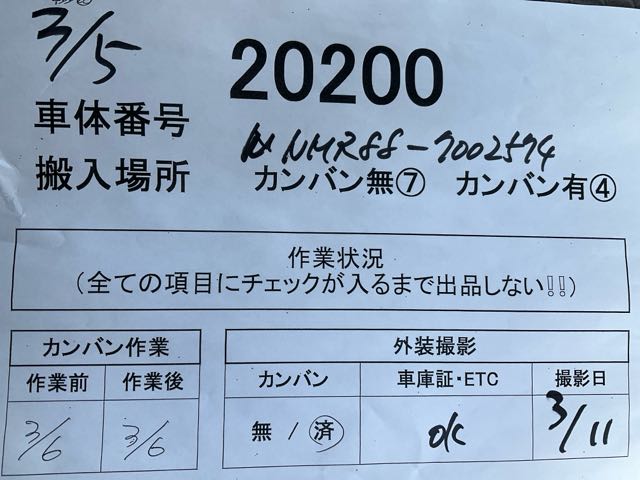 3/5
20200
車体番号 NMR88-7002574
搬入場所 カンバン無⑦ カンバン有④
作業状況
(全ての項目にチェックが入るまで出品しない!!)
カンバン作業 外装撮影
作業前 作業後 カンバン 車庫証・ETC 撮影日
3/6 3/6 無 / 済 OK 3/11